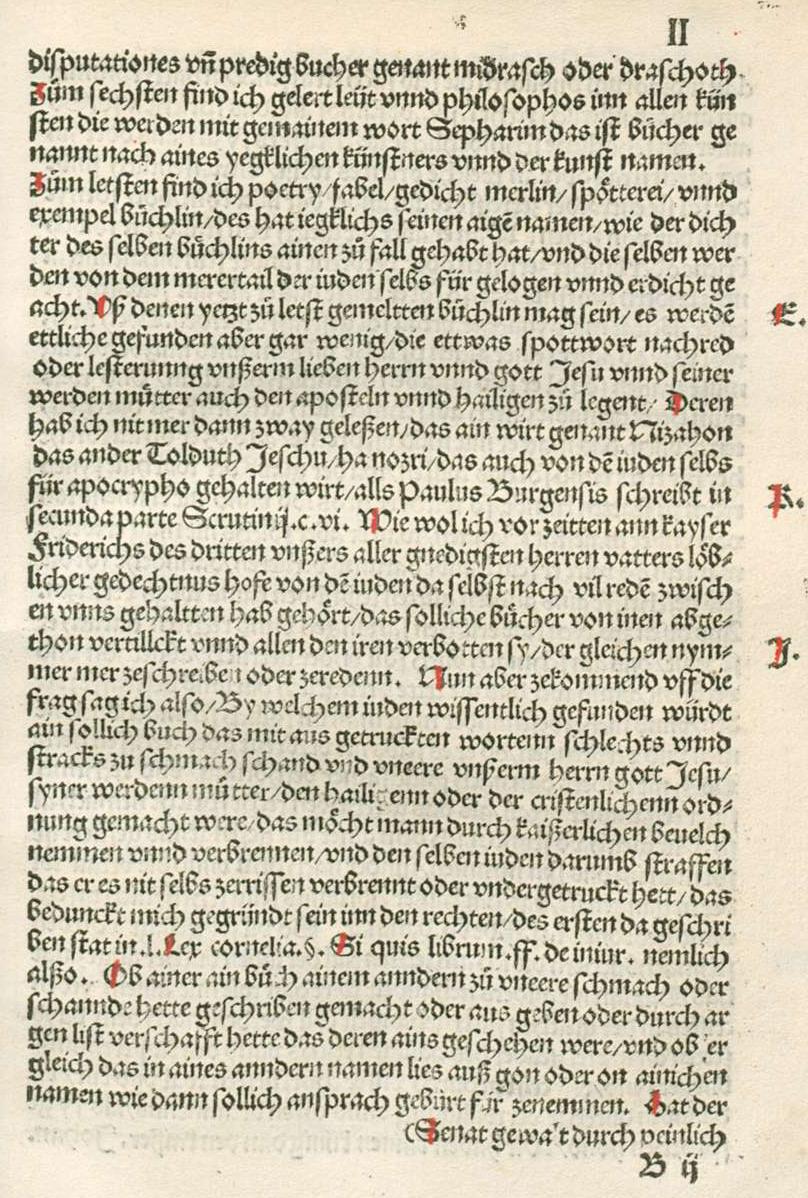 II
disputationes vñ predig bucher genant midrasch oder draschoth
Zům sechsten find ich gelert leüt vnnd philosophos inn allen kün
sten die werden mit gemainem wort Sepharim das ist bücher ge
nannt nach aines yegklichen künstners vnnd der kunst namen.
Zům letsten find ich poetry/fabel/gedicht merlin/spötterei/vnnd
exempel büchlin/des hat iegklichs seinen aigē namen/wie der dich
ter des selben büchlins ainen zů fall gehabt hat/vnd die selben wer
den von dem merertail der iuden selbs für gelogen vnnd erdicht ge
acht. Vß denen yetzt zů letst gemeltten büchlin mag sein/es werdē
E.
ettliche gefunden aber gar wenig/die ettwas spottwort nachred
oder lesterunng vnßerm lieben herrn vnnd gott Jesu vnnd seiner
werden můtter auch den aposteln vnnd hailigen zů legent/ Deren
hab ich nit mer dann zway geleßen/das ain wirt genant Nizahon
das ander Tolduth Jeschu/ha nozri/das auch von dē iuden selbs
für apocrypho gehalten wirt/alls Paulus Burgensis schreibt in
R.
secunda parte Scrutinij.c.vi. Wie wol ich vor zeitten ann kayser
Friderichs des dritten vnßers aller gnedigsten herren vatters löb⸗
licher gedechtnus hofe von dē iuden da selbst nach vil redē zwisch
en vnns gehaltten hab gehört/das solliche bücher von inen abge⸗
thon vertillckt vnnd allen den iren verbotten sy/der gleichen nym⸗
J.
mer mer zeschreiben oder zeredenn. Nun aber zekommend vff die
frag sag ich also/By welchem iuden wissentlich gefunden würdt
ain sollich buch das mit aus getruckten wortenn schlechts vnnd
stracks zu schmach schand vnd vneere vnßerm herrn gott Jesu/
syner werdenn můtter/den hailigenn oder der cristenlichenn ord⸗
nung gemacht were/das möcht mann durch kaißerlichen beuelch
nemmen vnnd verbrennen/vnd den selben iuden darumb straffen
das er es nit selbs zerrissen verbrennt oder vndergetruckt hett/das
bedunckt mich gegründt sein inn den rechten/des ersten da geschri
ben stat in.l.Lex cornelia.§. Si quis librum.ff.de iniur. nemlich
alßo. Ob ainer ain bůch ainem anndern zů vneere schmach oder
schannde hette geschriben gemacht oder aus geben oder durch ar
gen list verschafft hette das deren ains geschehen were/vnd ob er
gleich das in aines anndern namen lies auß gon oder on ainichen
namen wie dann sollich ansprach gebürt für zenemmen. Hat der
(Senat gewa't durch peinlich
B ij